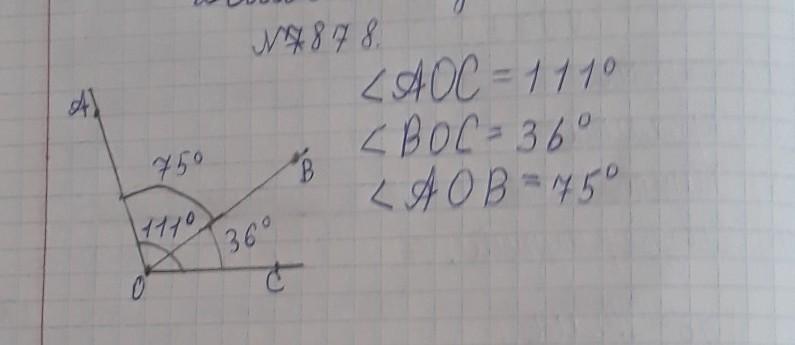 № 878.
∠AOC = 111°
∠BOC = 36°
∠AOB = 75°
A
75°
B
111°
36°
O
C